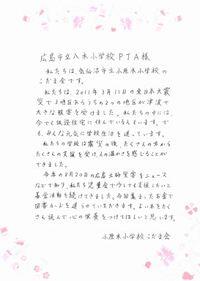 広島市立八木小学校PTA様
私たちは、気仙沼市立小原木小学校の
こだま会です。
私たちは、2011年3月11日の東日本大震
災で3地区あるうちの2つの地区が津波で
大きな被害を受けました。私たちの中には、
今でも仮設住宅に住んでいる人もいます。で
も、みんな元気に学校生活を送っています。
私たちの学校は震災の後、たくさんの方から
たくさんの支援を受け、人の温かさを感じることが
できました。
今年の8月20日の広島土砂災害をニュース
などで知り、私たち児童会でも支援したいと
募金活動を続けてきました。今回集まったお金で
図書カードを送らせていただきます。よい本をたく
さん読んで心の栄養をつけてほしいと思います。
小原木小学校こだま会